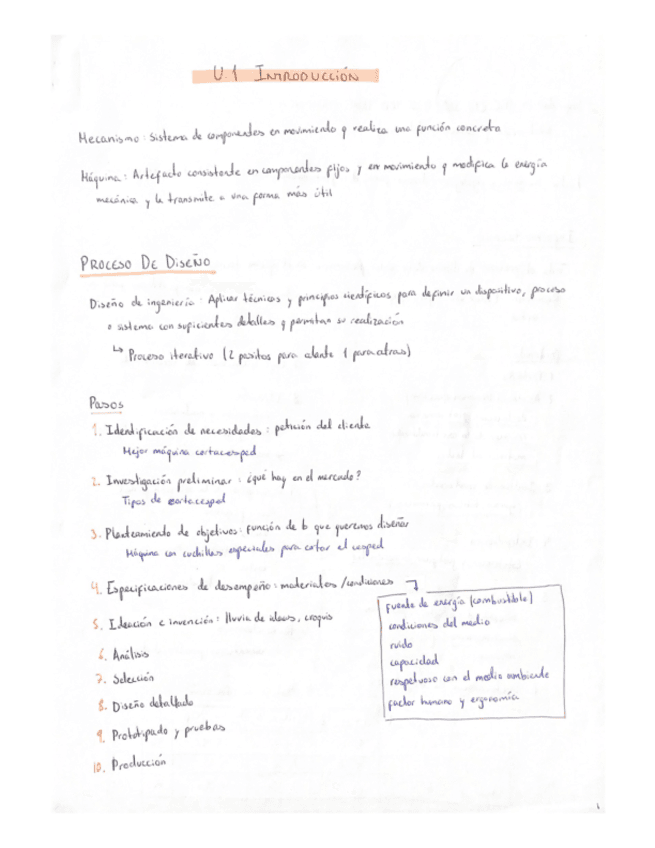 U.1 INTRODUCCIÓN
Mecanismo: Sistema de componentes en movimiento q realiza una función concreta
Máquina: Artefacto consistente en componentes fijos y en movimiento q modifica la energía
mecánica y la transmite a una forma más útil
PROCESO DE DISEÑO
Diseño de ingeniería: Aplicar técnicas y principios científicos para definir un dispositivo, proceso
o sistema con suficientes detalles q permitan su realización
↳ Proceso iterativo (2 pasitos para alante 1 para atras)
Pasos
1. Identificación de necesidades: petición del cliente
Mejor máquina cortacesped
2. Investigación preliminar: ¿qué hay en el mercado?
Tipos de cortacesped
3. Planteamiento de objetivos: función de lo que queremos diseñar
Máquina con cuchillas especiales para cortar el cesped
4. Especificaciones de desempeño: materiales/condiciones
fuente de energía (combustible)
condiciones del medio
ruido
capacidad
respetuoso con el medio ambiente
factor humano y ergonomía
5. Ideación e invención: lluvia de ideas, croquis
6. Análisis
7. Selección
8. Diseño detallado
9. Prototipado y pruebas
10. Producción